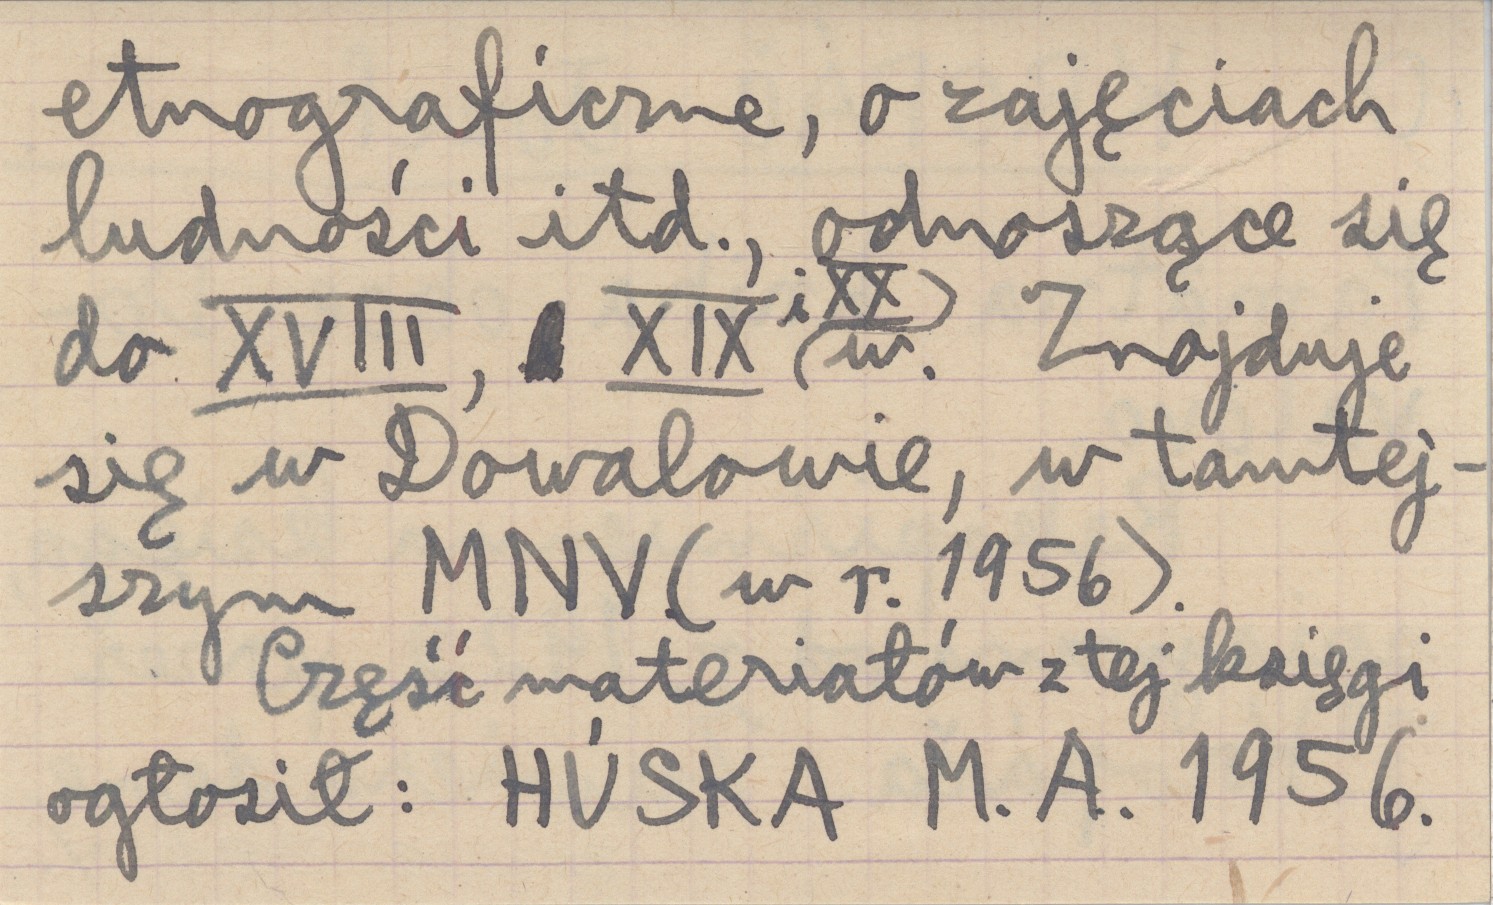 etnograficzne, o zajęciach
ludności itd., odnoszące się
do XVIII, XIX i XX w. Znajduje
się w Dowalowie, w tamtej-
szym MNV (w r. 1956).
Część materiałów z tej księgi
ogłosił: HÚSKA M. A. 1956.